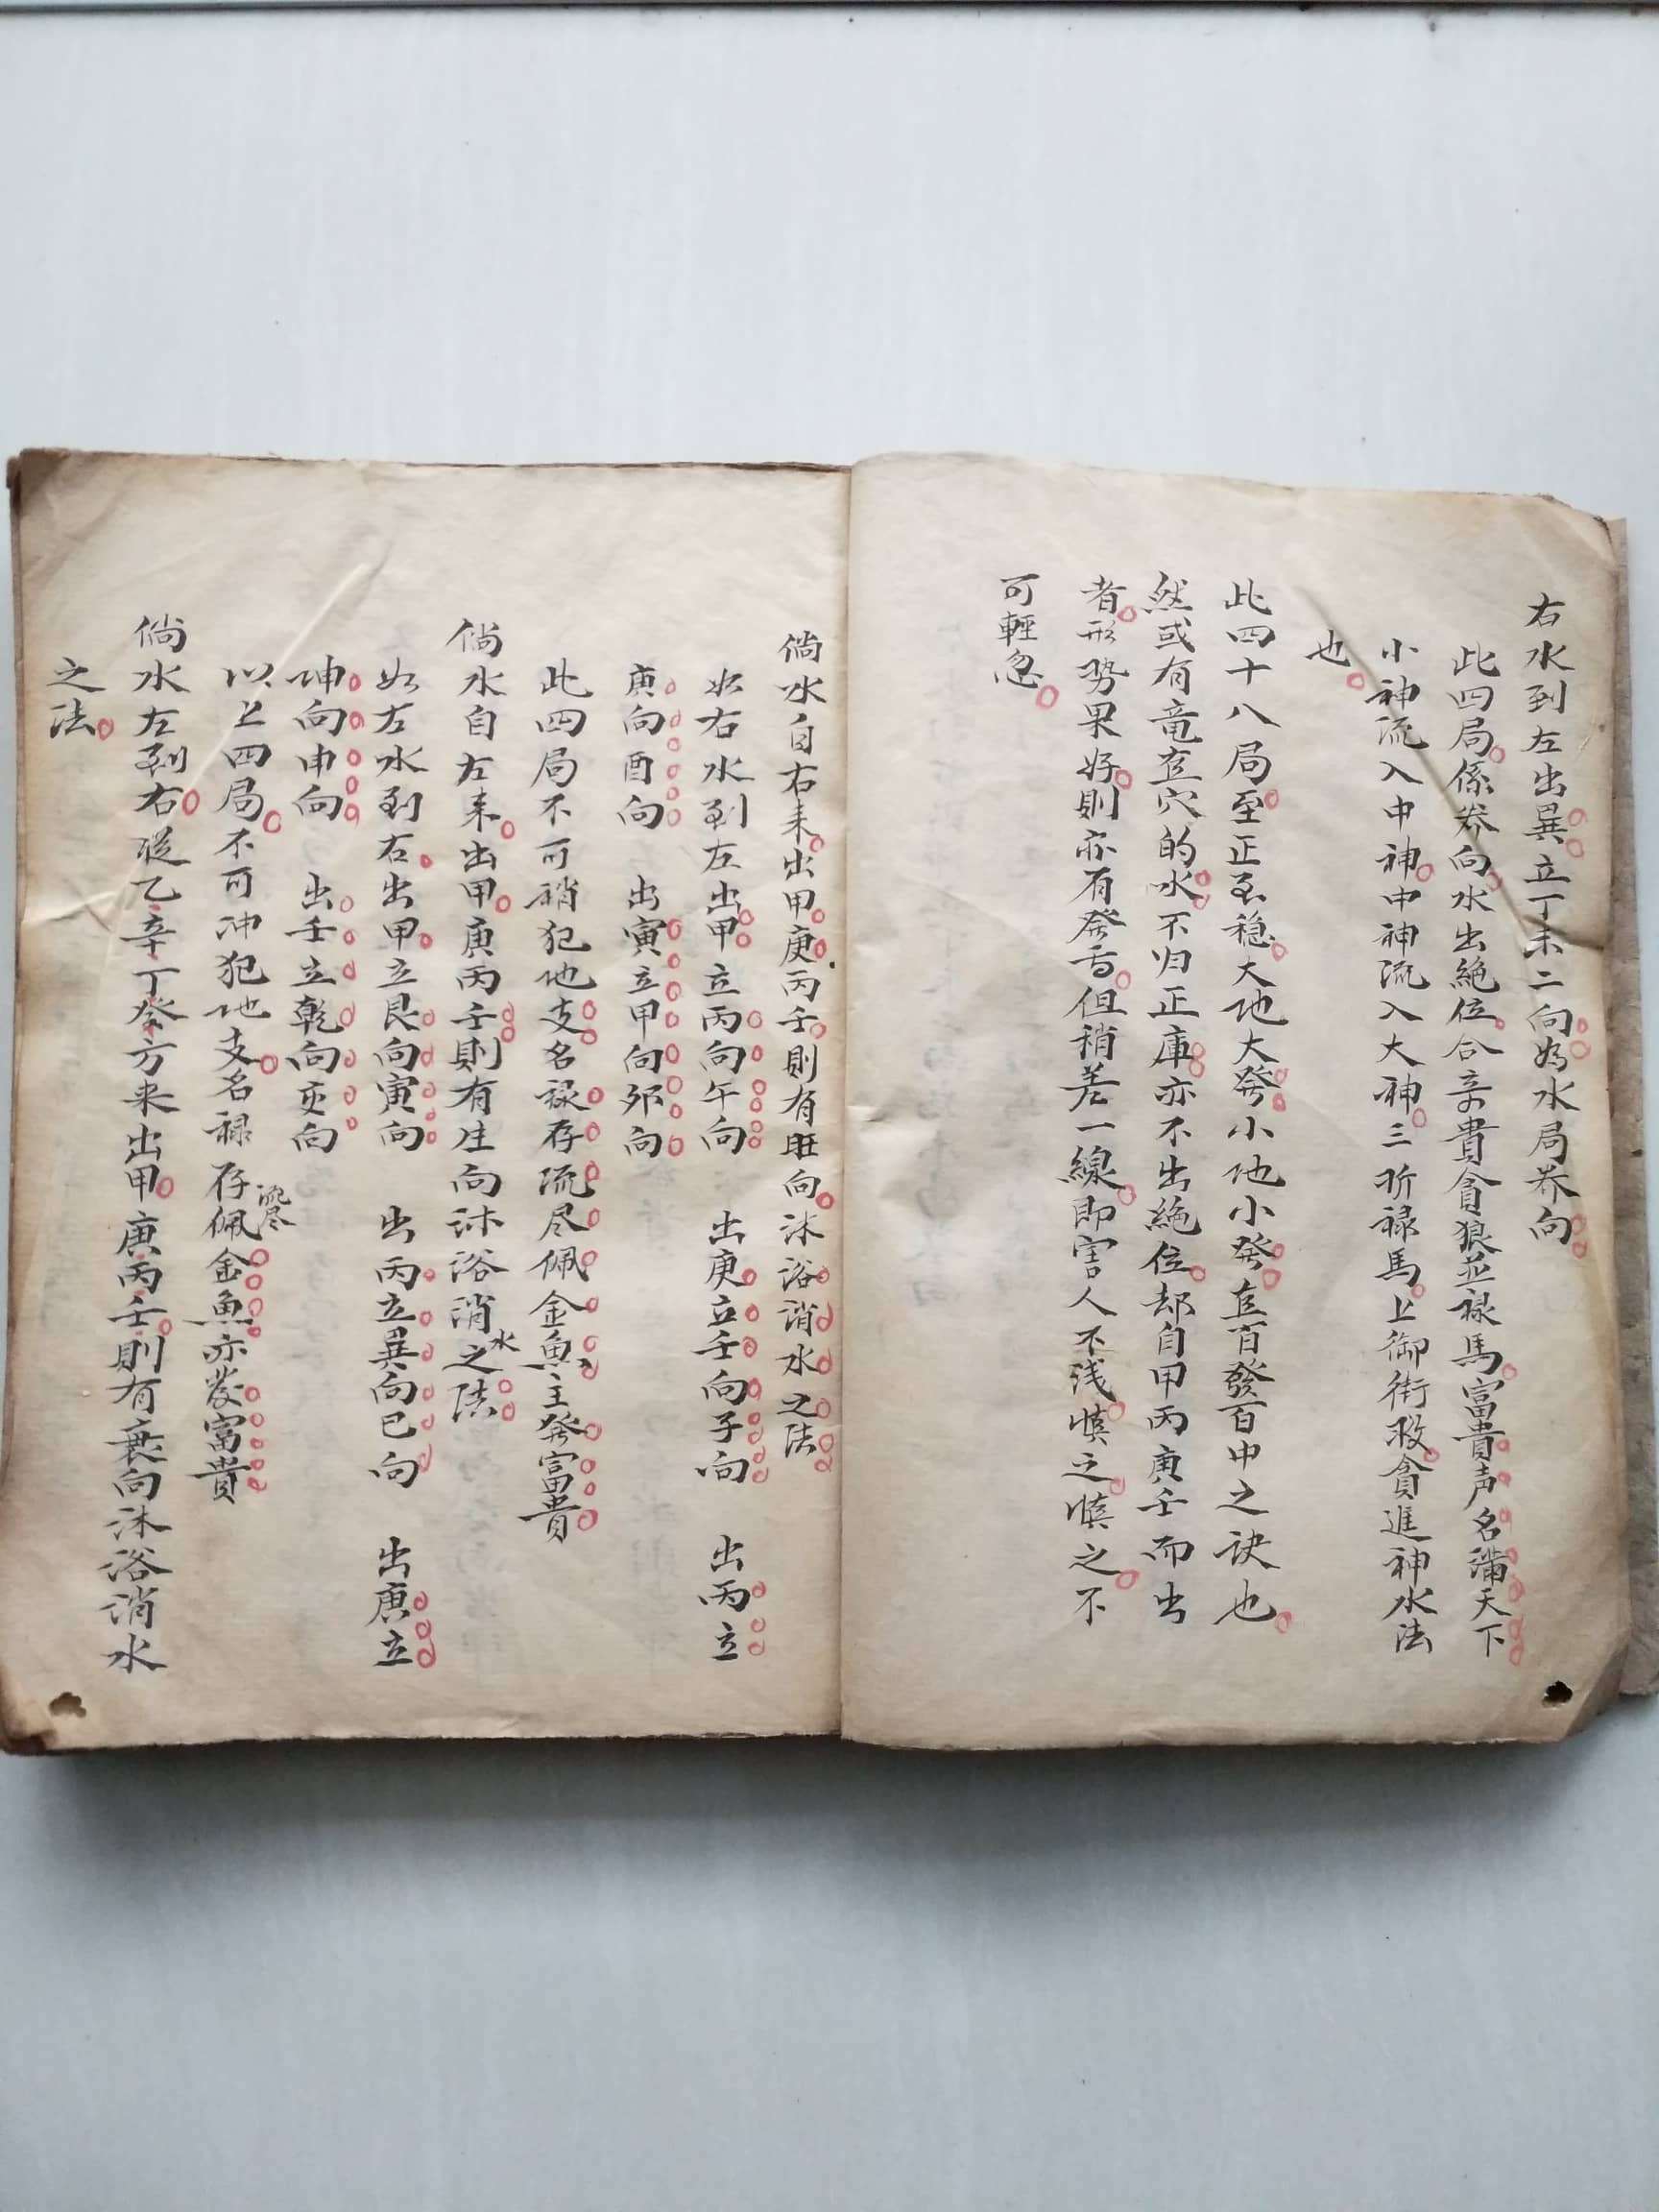 右水到左出巽立丁未二向為水局养向
此四局係养向水出絶位合辛貴貪狼並禄馬富貴声名滿天下
小神流入中神中神流入大神三折禄馬上御街救貪進神水法
也
此四十八局至正至穏大地大発小地小発直百發百中之訣也
然或有竜直穴的水不归正庫亦不出絶位却自甲丙庚壬而出
者形势果好則亦有発吉但稍差一線即害人不浅慎之慎之不
可輕忽
倘水自右来出甲庚丙壬則有旺向沐浴消水之法
如右水到左出甲立丙向午向 出庚立壬向子向 出丙立
庚向酉向 出寅立甲向夘向
此四局不可稍犯地支名禄存流尽佩金魚主発富貴
倘水自左来出甲庚丙壬則有生向沐浴消水之法
如左水到右出甲立艮向寅向 出丙立巽向巳向 出庚立
坤向申向 出壬立乾向亥向
以上四局不可冲犯地支名禄存流尽佩金魚亦發富貴
倘水左到右從乙辛丁癸方来出甲庚丙壬則有衰向沐浴消水
之法